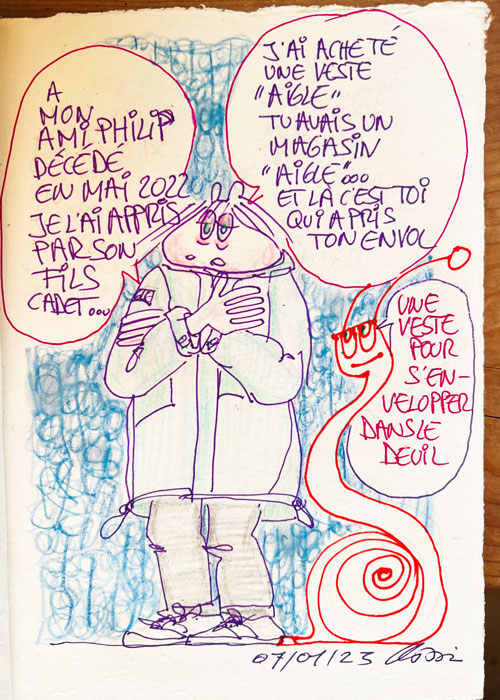 A
MON
AMI PHILIP
DÉCÉDÉ
EN MAI 2022
JE L'AI APPRIS
PAR SON
FILS
CADET...
J'AI ACHETÉ
UNE VESTE
"AIGLE"
TU AVAIS UN
MAGASIN
"AIGLE"...
ET LÀ C'EST TOI
QUI A PRIS
TON ENVOL
UNE
VESTE
POUR
S'EN-
VELOPPER
DANS LE
DEUIL
07/01/23